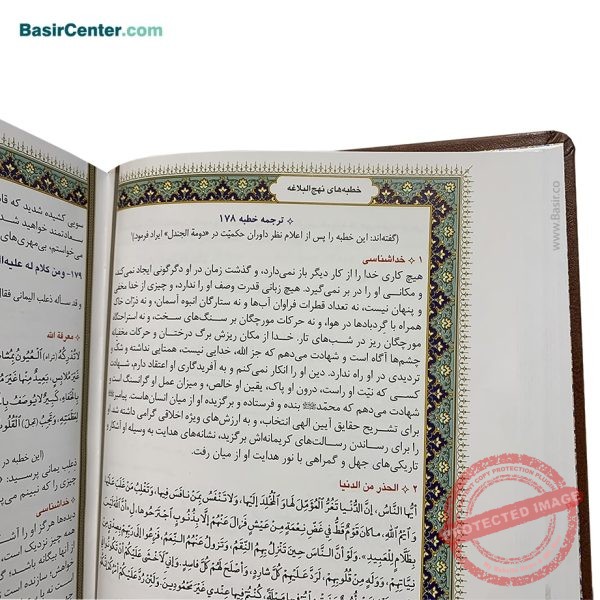 BasirCenter.com
خطبه‌های نهج‌البلاغه
ترجمه خطبه ۱۷۸
(گفته‌اند: این خطبه را پس از اعلام نظر داوران حکمیّت در «دومة الجندل» ایراد فرمود.)
۱ خداشناسی
هیچ کاری خدا را از کار دیگر باز نمی‌دارد، و گذشت زمان در او دگرگونی ایجاد نمی‌کند
و مکانی او را در بر نمی‌گیرد. هیچ زبانی قدرت وصف او را ندارد، و چیزی از خدا مخفی
و پنهان نیست، نه تعداد قطرات فراوان آب‌ها و نه ستارگان انبوه آسمان، و نه ذرّات خاک
همراه با گردبادها در هوا، و نه حرکات مورچگان بر سنگ‌های سخت، و نه استراحتگاه
مورچگان ریز در شب‌های تار. خدا از مکان ریزش برگ درختان و حرکات مخفیانه
چشم‌ها آگاه است و شهادت می‌دهم که جز الله، خدایی نیست، همتایی نداشته و شک و
تردیدی در او راه ندارد. دین او را انکار نمی‌کنم و به آفریدگاری او اعتقاد دارم، شهادت
کسی که نیّت او راست، درون او پاک، یقین او خالص، و میزان عمل او گرانسنگ است و
شهادت می‌دهم که محمّد بنده و فرستاده و برگزیده او از میان انسان‌هاست. پیامبر
برای تشریح حقایق آیین الهی انتخاب، و به ارزش‌های ویژه اخلاقی گرامی داشته شد. او
را برای رساندن رسالت‌های کریمانه‌اش برگزید، نشانه‌های هدایت به وسیله او آشکار و
تاریکی‌های جهل و گمراهی با نور هدایت او از میان رفت.
۲ الحذر من الدنیا
أَيُّهَا النَّاسُ، إِنَّ الدُّنْيَا تَغُرُّ الْمُؤَمِّلَ لَهَا وَالْمُخْلِدَ إِلَيْهَا، وَلَا تَنْفَسُ بِمَنْ نَافَسَ فِيهَا، وَتَغْلِبُ مَنْ غَلَبَ عَلَيْهَا.
وَأَيْمُ اللهِ، مَا كَانَ قَوْمٌ قَطُّ فِي غَضِّ نِعْمَةٍ مِنْ عَيْشٍ فَزَالَ عَنْهُمْ إِلَّا بِذُنُوبٍ اجْتَرَحُوهَا، لِأَنَّ اللهَ لَيْسَ
بِظَلَّامٍ لِلْعَبِيدِ». وَلَوْ أَنَّ النَّاسَ حِينَ تَنْزِلُ بِهِمُ النِّقَمُ، وَتَزُولُ عَنْهُمُ النِّعَمُ، فَزِعُوا إِلَى رَبِّهِمْ بِصِدْقٍ مِنْ
نِيَّاتِهِمْ، وَوَلَهٍ مِنْ قُلُوبِهِمْ، لَرَدَّ عَلَيْهِمْ كُلَّ شَارِدٍ، وَأَصْلَحَ لَهُمْ كُلَّ فَاسِدٍ. وَإِنِّي لَأَخْشَى عَلَيْكُمْ أَنْ تَكُونُوا
سوی کشیده شدید که
سعادتمند خواهید شد
می‌خواستم، بی‌مهری‌های
۱۷۹- ومن کلام له علیه
و قد سأله ذعلب الیمانی فقال
معرفة الله
لَا تُدْرِكُهُ الْعُيُونُ
(این خطبه در
ذعلب یمانی پرسید:
چیزی را که نبینم
خداشناسی
دیده‌ها هرگز او را
همه چیز نزدیک است
از آنها بیگانه باشد؛
خواهی؛ سازنده است
www.Basir.co
PROTECTED IMAGE